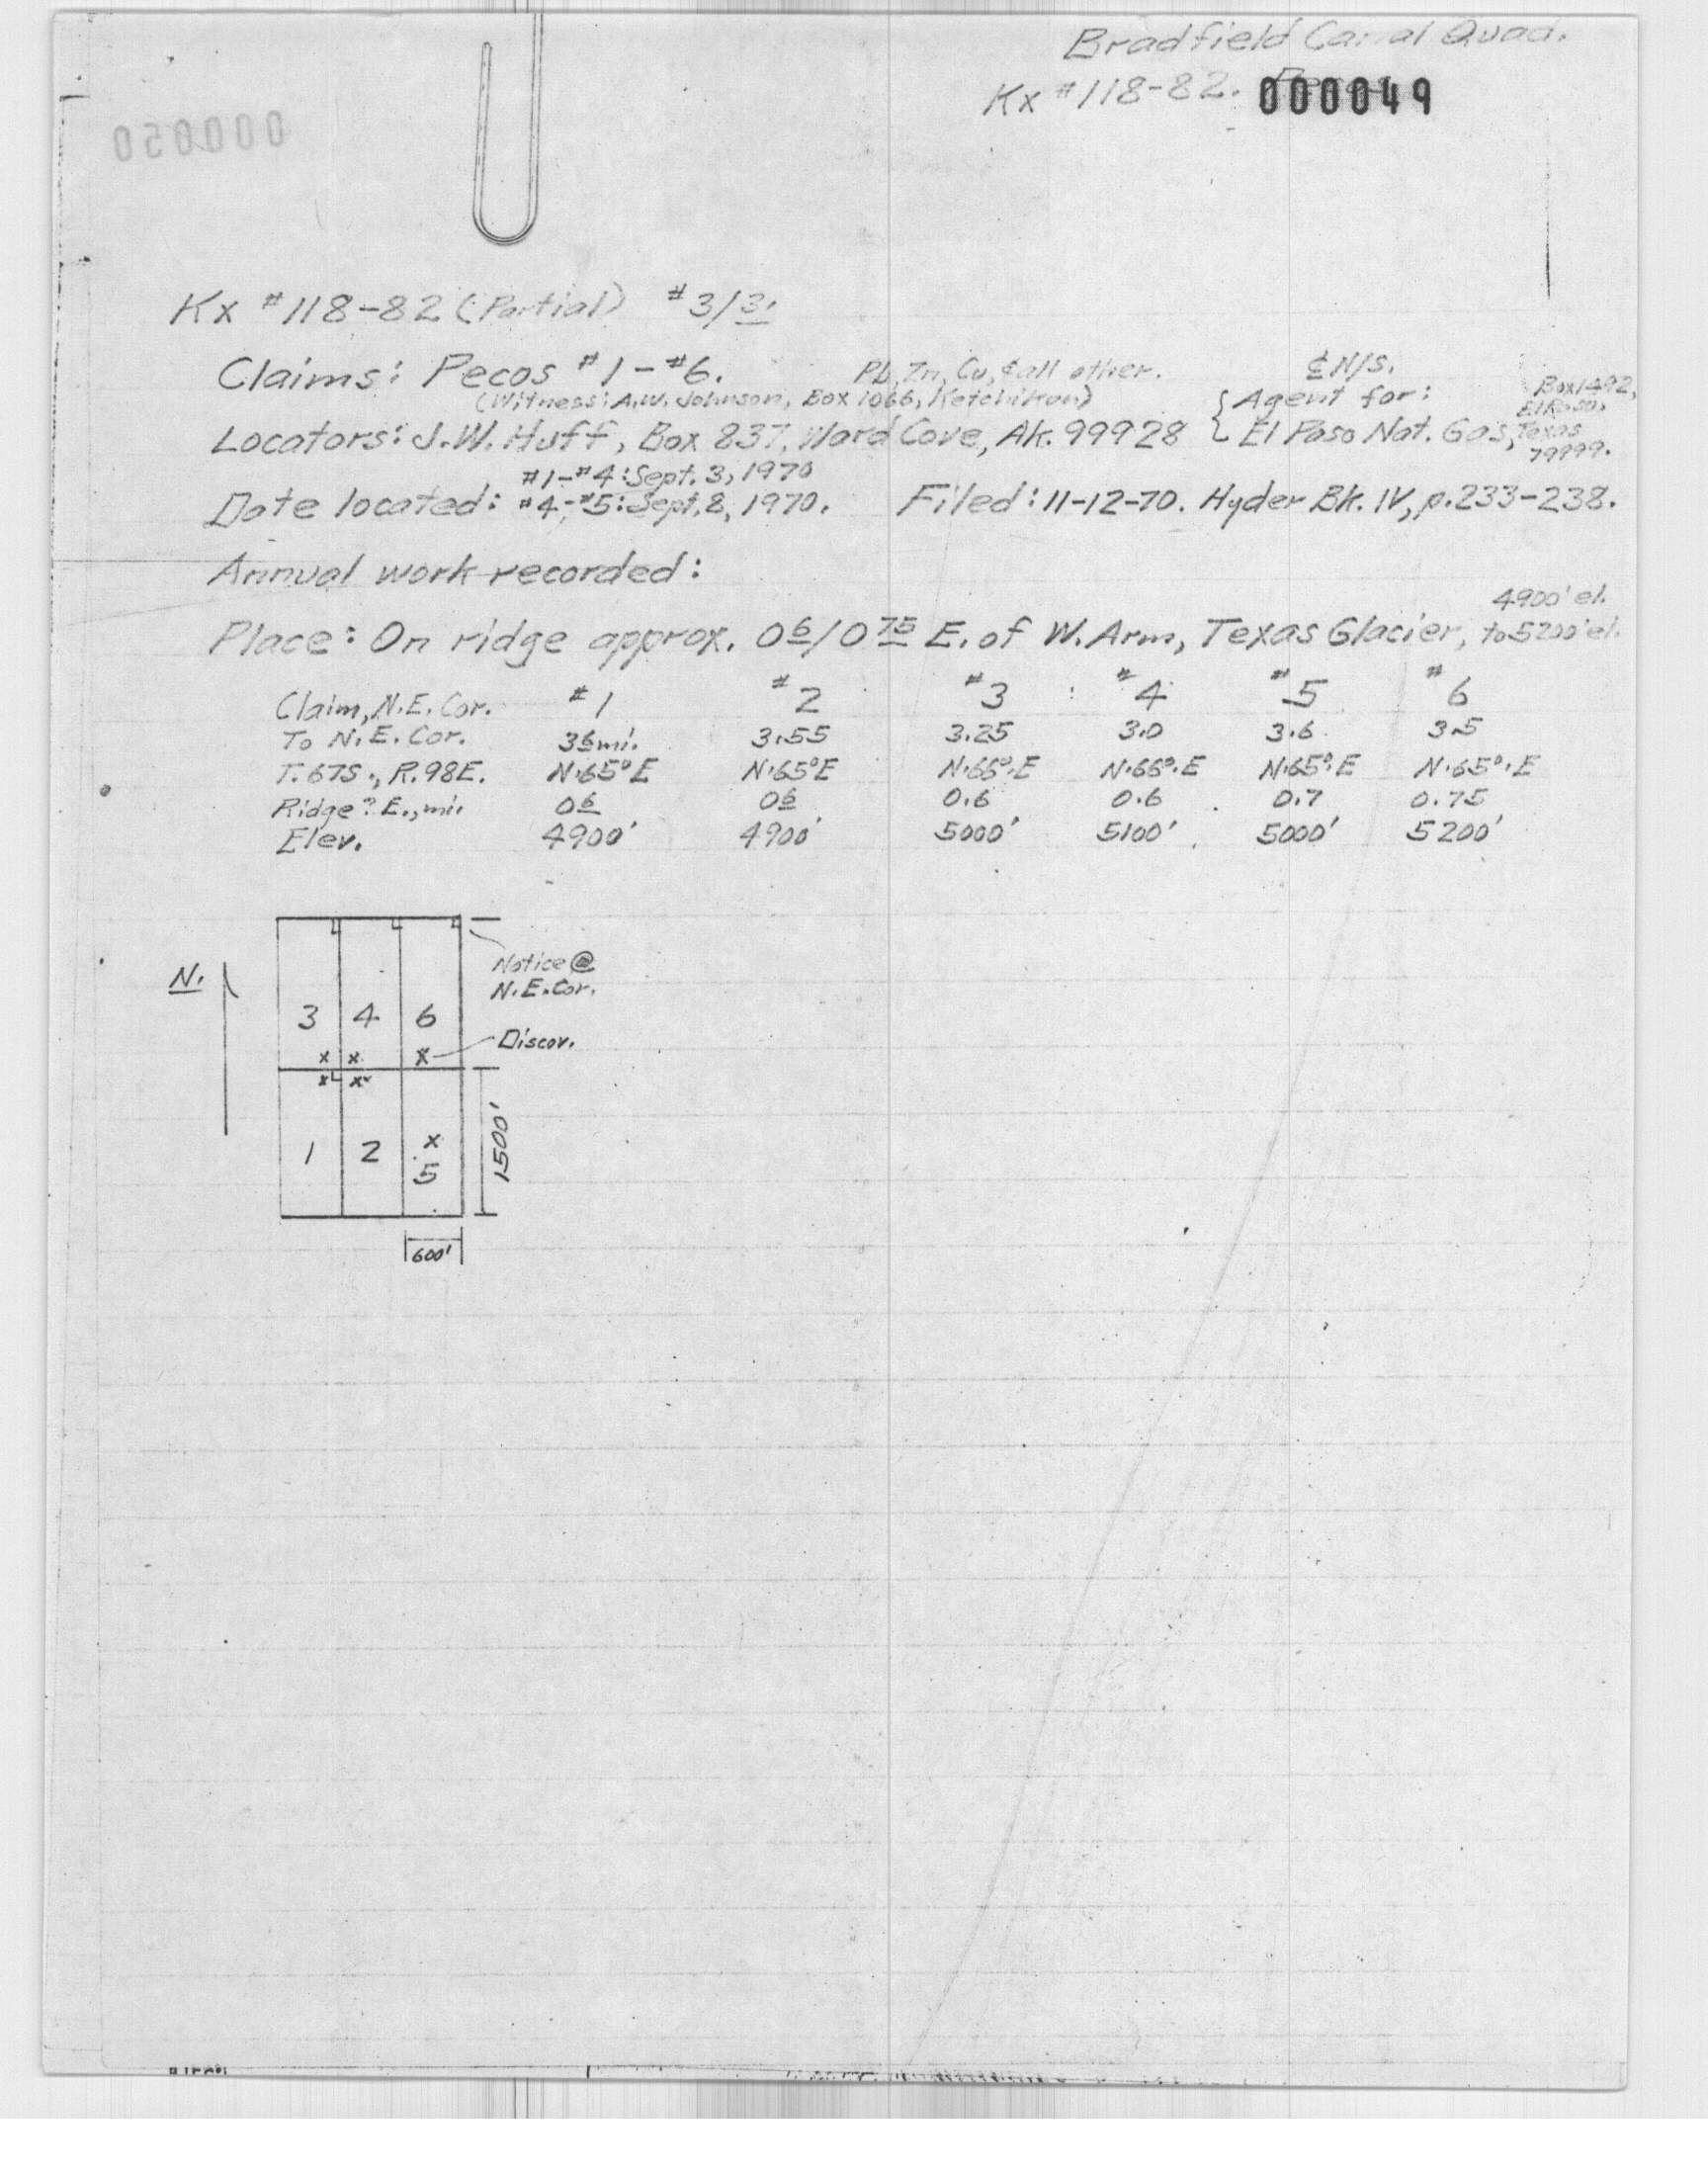 Bradfield Canal Quad.
Kx #118-82. 000049
000050
Kx #118-82 (Partial) #3/3.
Claims: Pecos #1-#6. Pb, Zn, Cu, & all other. & N/S.
(Witness: A.W. Johnson, Box 1066, Ketchikan)
Locators: J.W. Huff, Box 837, Ward Cove, Ak. 99928 { Agent for: El Paso Nat. Gas, Box 1492, El Paso, Texas 79999.
#1-#4: Sept. 3, 1970
Date located: #4-#5: Sept. 8, 1970. Filed: 11-12-70. Hyder Bk. IV, p. 233-238.
Annual work recorded:
Place: On ridge approx. 06/075 E. of W. Arm, Texas Glacier, 4900' el. to 5200' el.
Claim, N.E. Cor. #1 #2 #3 #4 #5 #6
To N.E. Cor. 36 mi. 3.55 3.25 3.0 3.6 3.5
T. 67S., R. 98E. N.65°E N.65°E N.66°.E N.66°.E N.65°.E N.65°.E
Ridge? E., mi. 06 06 0.6 0.6 0.7 0.75
Elev. 4900' 4900' 5000' 5100' 5000' 5200'
Notice @
N. N.E. Cor.
3 4 6
Discov.
x x x
x x
1500'
x
1 2 5
600'